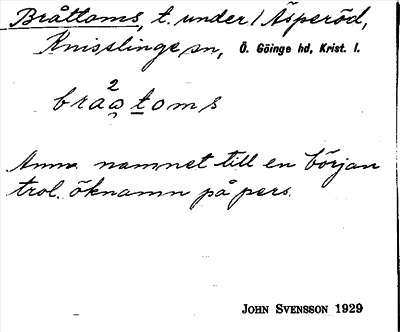 Bråttoms, t. under 1 Äsperöd,
Knisslinge sn, Ö. Göinge hd, Krist. l.
2
braatoms
Anm. namnet till en början
trol. öknamn på pers.
JOHN SVENSSON 1929